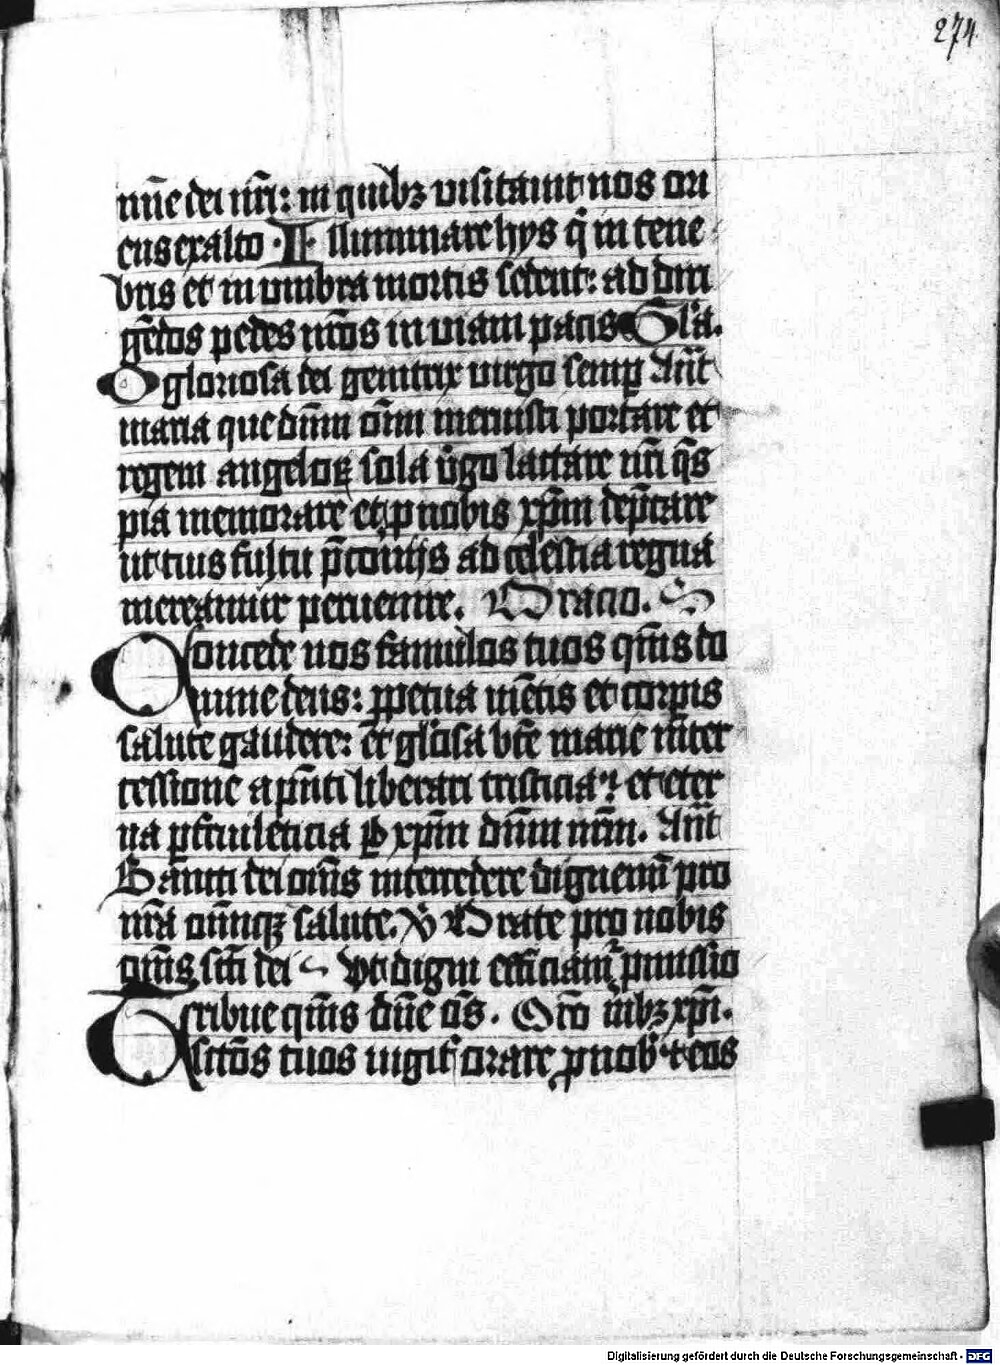 274
mīe dei nr̄i: in quibꝫ visitauit nos ori
ens ex alto · Illuminare hys q̄ in tene
bris et in umbra mortis sedent: ad diri
gēdos pedes nr̄os in viam pacis Glīa.
O gloriosa dei genitrix virgo semꝑ Anͭ
maria que dn̄m oīm meruisti portare et
regem angeloꝝ sola v̄go lactare nr̄i q̄s
pia memorare et ꝓ nobis xp̄m dep̄care
ut tuis fulti p̄conijs ad celestia regna
mereamur peruenire. Oracio.
Concede nos famulos tuos qm̄s do
mine deus: ꝑpetua mētis et corpis
salute gaudere: et gl̄osa bt̄e marie īter
cessione a p̄nti liberari tristicia et eter
na ꝑfrui leticia P xp̄m dn̄m nr̄m. Anͭ
Sancti dei om̄s intercedere dignemī pro
nr̄a om̄iqꝫ salute. V̄ Orate pro nobis
om̄s sc̄i dei Vt digni efficiamꝰ ꝓmissio
Tribue qm̄s dn̄e oēs. Oīo nibꝫ xp̄i.
sctōs tuos iugit orare ꝓ nobꝰ et eos
Digitalisierung gefördert durch die Deutsche Forschungsgemeinschaft - DFG